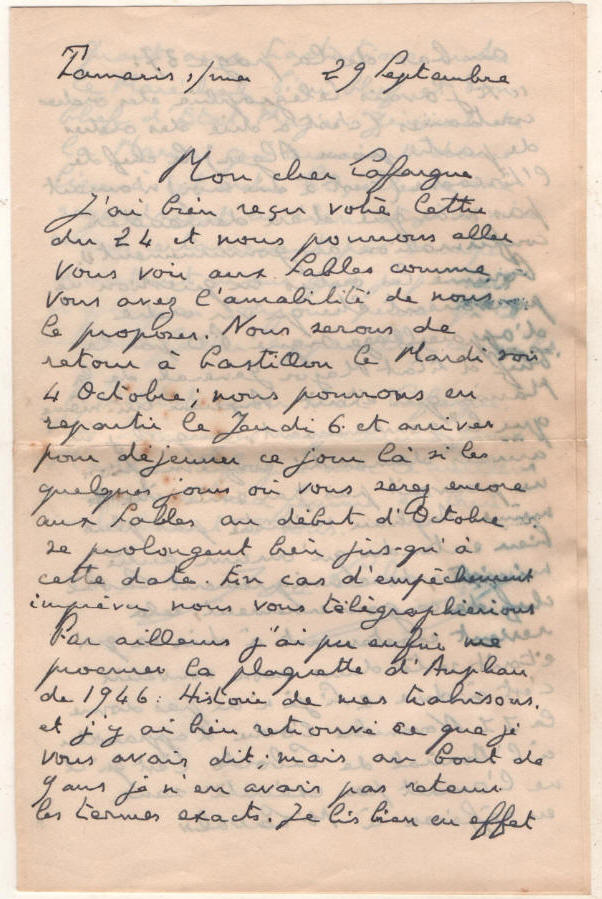 Tamaris s/mer 29 Septembre
Mon cher Lafargue
J'ai bien reçu votre lettre
du 24 et nous pourrons aller
vous voir aux Sables comme
vous avez l'amabilité de nous
le proposer. Nous serons de
retour à Castillon le Mardi soir
4 Octobre; nous pourrons en
repartir le Jeudi 6 et arriver
pour déjeuner ce jour là si les
quelques jours où vous serez encore
aux Sables au début d'Octobre
se prolongent bien jus-qu'à
cette date. En cas d'empêchement
imprévu nous vous télégraphierions
Par ailleurs j'ai pu enfin me
procurer la plaquette d'Auphan
de 1946: Histoire de mes trahisons.
et j'y ai bien retrouvé ce que je
vous avais dit, mais au bout de
9 ans je n'en avais pas retenu
les termes exacts. Je lis bien en effet